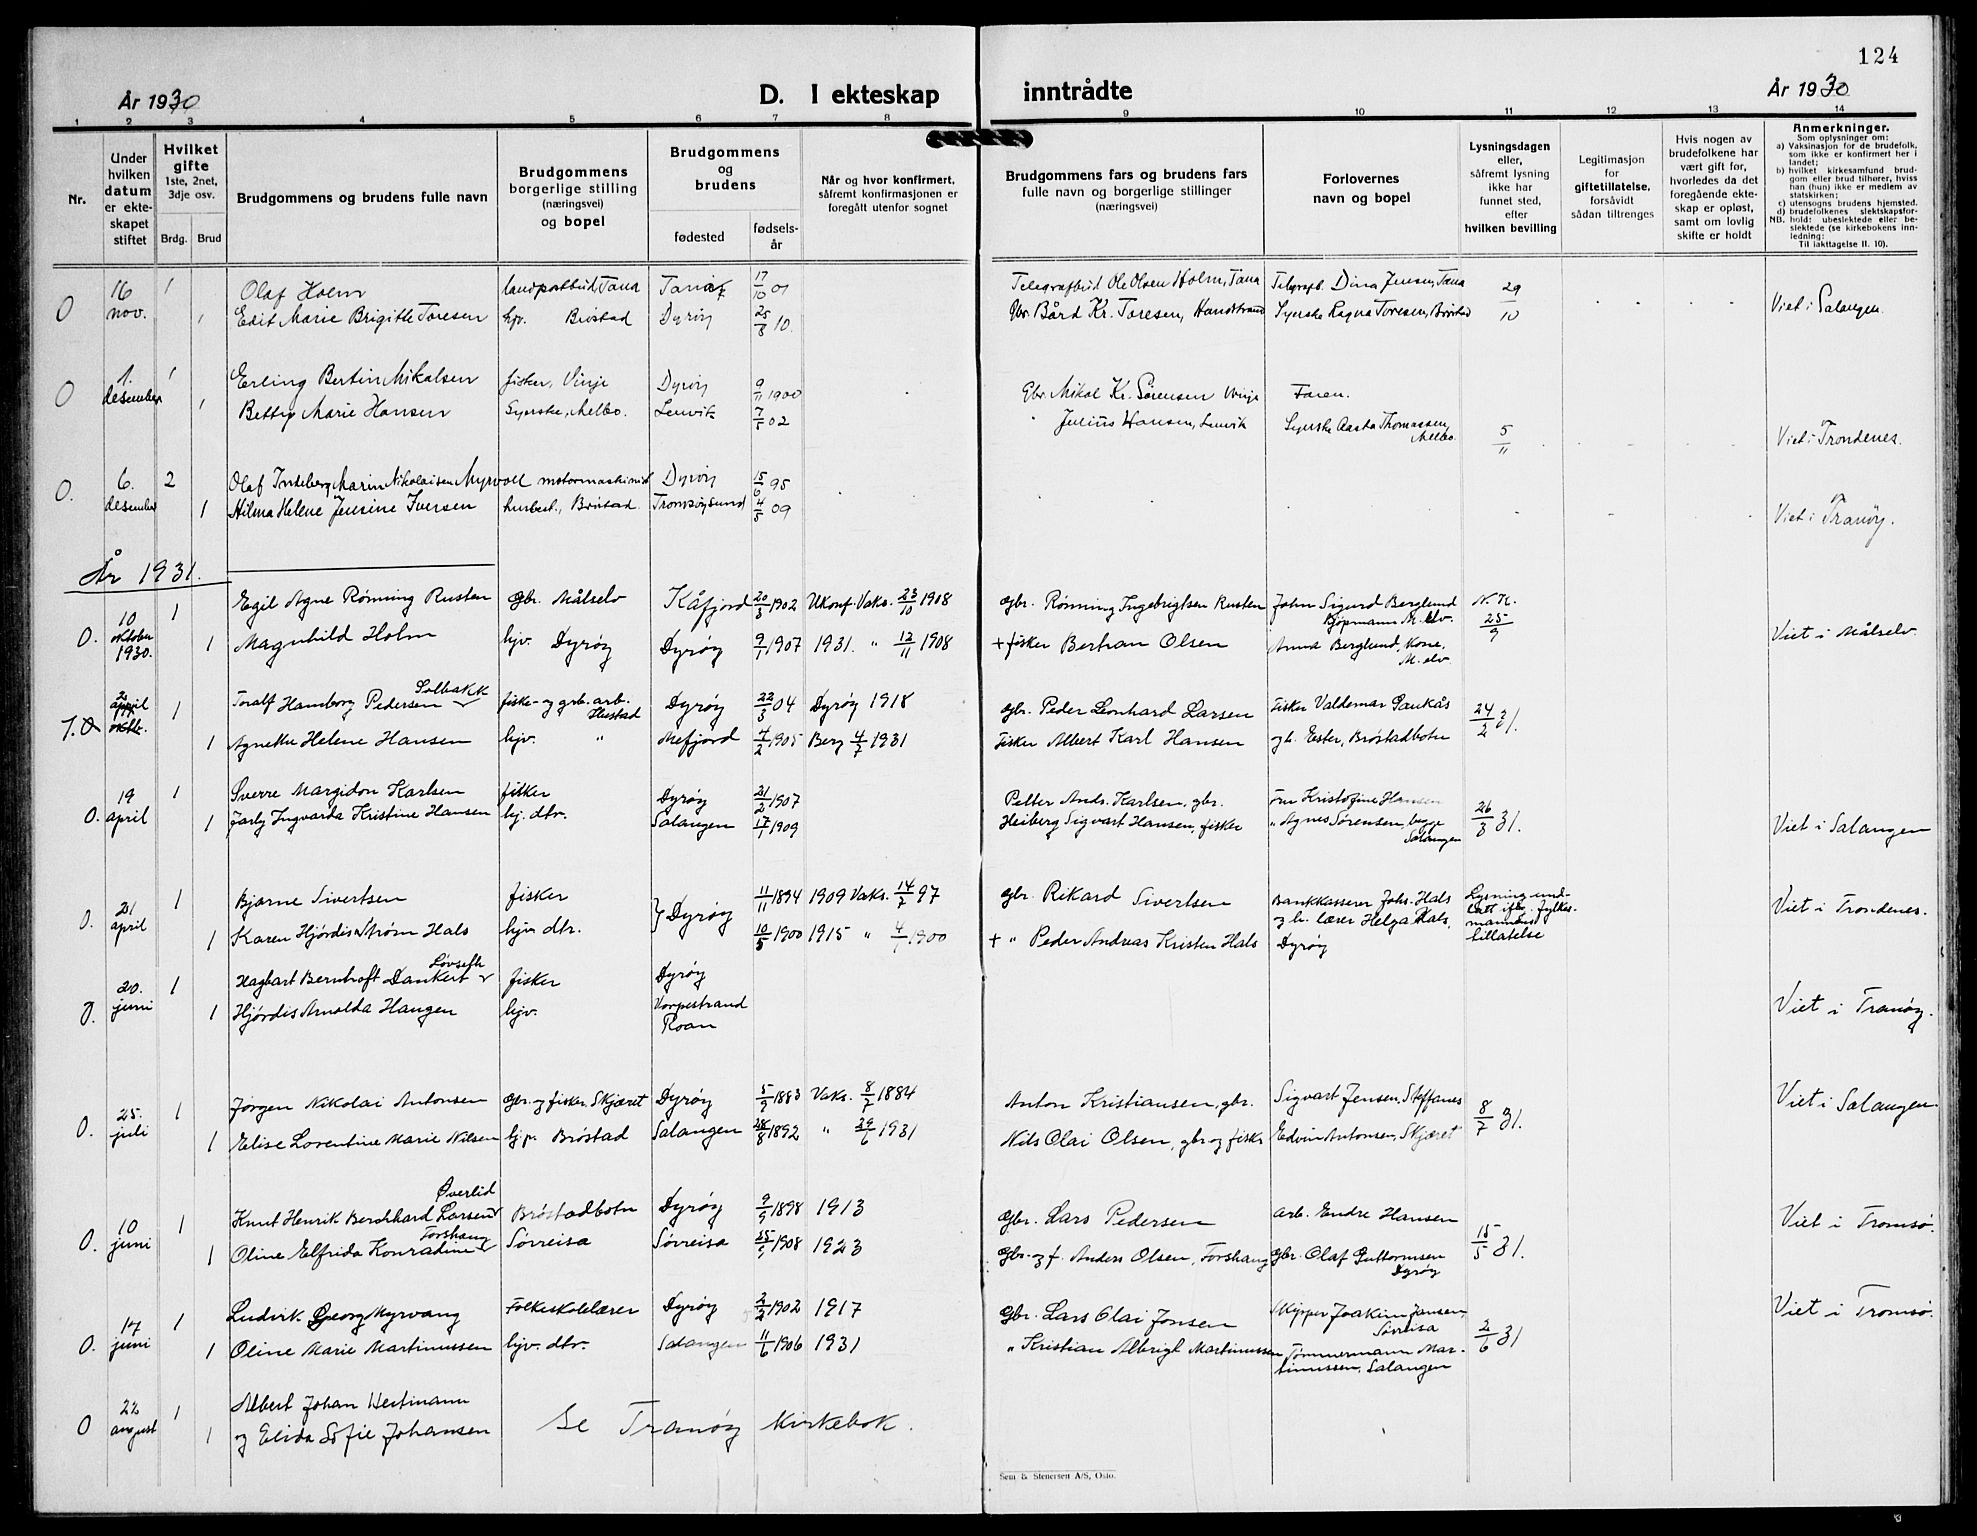 124
År 1930
D. I ekteskap
inntrådte
År 1930
1 2 3 4 5 6 7 8 9 10 11 12 13 14
Nr.
Under hvilken datum er ekteskapet stiftet
Hvilket gifte
1ste, 2net, 3dje osv.
Brdg. Brud
Brudgommens og brudens fulle navn
Brudgommens borgerlige stilling (næringsvei) og bopel
Brudgommens og brudens
fødested
fødsels-år
Når og hvor konfirmert, såfremt konfirmasjonen er foregått utenfor sognet
Brudgommens fars og brudens fars fulle navn og borgerlige stillinger (næringsvei)
Forlovernes navn og bopel
Lysningsdagen eller, såfremt lysning ikke har funnet sted, efter hvilken bevilling
Legitimasjon for giftetillatelse, forsåvidt sådan tiltrenges
Hvis nogen av brudefolkene har vært gift før, hvorledes da det foregående ekteskap er opløst, samt om lovlig skifte er holdt
Anmerkninger.
Som oplysninger om:
a) Vaksinasjon for de brudefolk, som ikke er konfirmert her i landet;
b) hvilket kirkesamfund brudgom eller brud tilhører, hviss han (hun) ikke er medlem av statskirken;
c) utensogns brudens hjemsted.
d) brudefolkenes slektskapsforhold: ubeslektede eller beslektede (se kirkebokens innledning:
NB.
Til iakttagelse II. 10).
0 16 nov. 1 Olaf Holm landpostbud, Tana Tana 17/10 01 Telegrafbud Ole Olsen Holm, Tana Telgrafb. Dina Jensen, Tana 29/10
1 Edit Marie Brigitte Toresen hjv. Brøstad Dyrøy 25/8 10. Gbr. Bård Kr. Toresen, Syerske Ragna Toresen, Brøstad Viet i Salangen.
0 1. desember 1 Erling Bertin Mikalsen fisker, Vinje Dyrøy 9/11 1900 Gbr. Mikal Kr. Sørensen Vinje Faren.
1 Betty Marie Hansen Syerske, Melbo. Lenvik 7/5 02 Julius Hansen, Lenvik Syerske Aasta Thomassen, Melbo. 5/11 Viet i Trondenes.
0. 6. desember 2 Olaf Ingeberg Marin Nikolaisen Myrvoll motormaskinist Dyrøy 15/6 95
1 Hilma Helene Jensine Iversen husbest., Brøstad. Tromsøysund 4/5 09 Viet i Tranøy.
År 1931.
0. 10 oktober 1930. 1 Egil Agne Rønning Rusten gbr. Målselv Kåfjord 20/3 1902 Ukonf. Vaks. 23/10 1908 gbr. Rønning Ingebrigtsen Rusten John Sigurd Berglund M. elv. N. K. 25/9
1 Magnhild Holm hjv. Dyrøy Dyrøy 9/1 1907 1931. " 12/11 1908 + fisker Bertran Olsen Anna Berglund, Kone, M. elv Viet i Målselv.
1.0 2 april 1 Toralf Hamborg Pedersen Solbakk fiske- og grb. arb. Dyrøy 22/3 04 Dyrøy 1918 gbr. Peder Leonhard Larsen Fisker Valdemar Gaukås 24/2 31.
1 Agnethe Helene Hansen hjv. " Mefjord 4/2 1905 Berg 4/7 1931 Fisker Albert Karl Hansen og h. Ester, Brøstadbotn
0. 19 april 1 Sverre Margidon Karlsen fisker Dyrøy 21/2 1907 Petter Ands. Karlsen, gbr. Fru Kristofine Hansen 26/3 31.
1 Jarly Ingvarda Kristine Hansen hj. dtr. Salangen 17/1 1909 Heiberg Sigvart Hansen, fisker " Agnes Sørensen, begge Salangen Viet i Salangen
0. 21 april 1 Bjarne Sivertsen fisker } Dyrøy 11/11 1894 1909 Vaks. 14/7 97 gbr. Rikard Sivertsen Bankkasserer Johs. Hals og h. lærer Helga Hals, Dyrøy Viet i Trondenes.
1 Karen Hjørdis Strøm Hals hjv dtr. 10/5 1900 1915 " 4/1 1900 + " Peder Andreas Kristen Hals
0. 20. juni 1 Hagbart Bernhoft Dankert Løvseth fisker Dyrøy
1 Hjørdis Arnolda Haugen hjv. Vorpestrand Roan Viet i Tranøy.
0. 25. juli 1 Jørgen Nikolai Antonsen gbr. og fisker, Skjæret Dyrøy 5/9 1883 Vaks. 8/7 1884 Anton Kristiansen, gbr. Sigvart Jensen, Steffanes 8/7 31. Viet i Salangen.
1 Elise Lorentine Marie Nilsen hjv. Brøstad Salangen 28/8 1892 " 29/6 1931 Nils Olai Olsen, gbr og fisker Edvin Antonsen, Skjæret
0. 10 juni 1 Knut Henrik Bernhard Larsen Øverlid Brøstadbotn Dyrøy 9/9 1898 1913 gbr. Lars Pedersen arb. Endre Hansen 15/5 31. Viet i Tromsø.
1 Oline Elfrida Konradine Forshaug Sørreisa Sørreisa 25/5 1908 1923 gbr- og f. Anders Olsen, Forshaug gbr. Olaf Guttormsen Dyrøy
0. 17 juni 1 Ludvik Georg Myrvang Folkeskolelærer Dyrøy 2/2 1902 1917 gbr. Lars Olai Jonsen Skipper Joakim Jansen, Sørreisa 2/6 31 Viet i Tromsø.
1 Oline Marie Martinussen hjv. dtr. Salangen 11/6 1906 1931 " Kristian Albrigt Martinussen Tømmermann Martinussen, Salangen
0 22 august 1 Albert Johan Hertmann
1 og Elida Sofie Johansen Se Tranøy Kirkebok.
Sem & Stenersen A/S, Oslo.